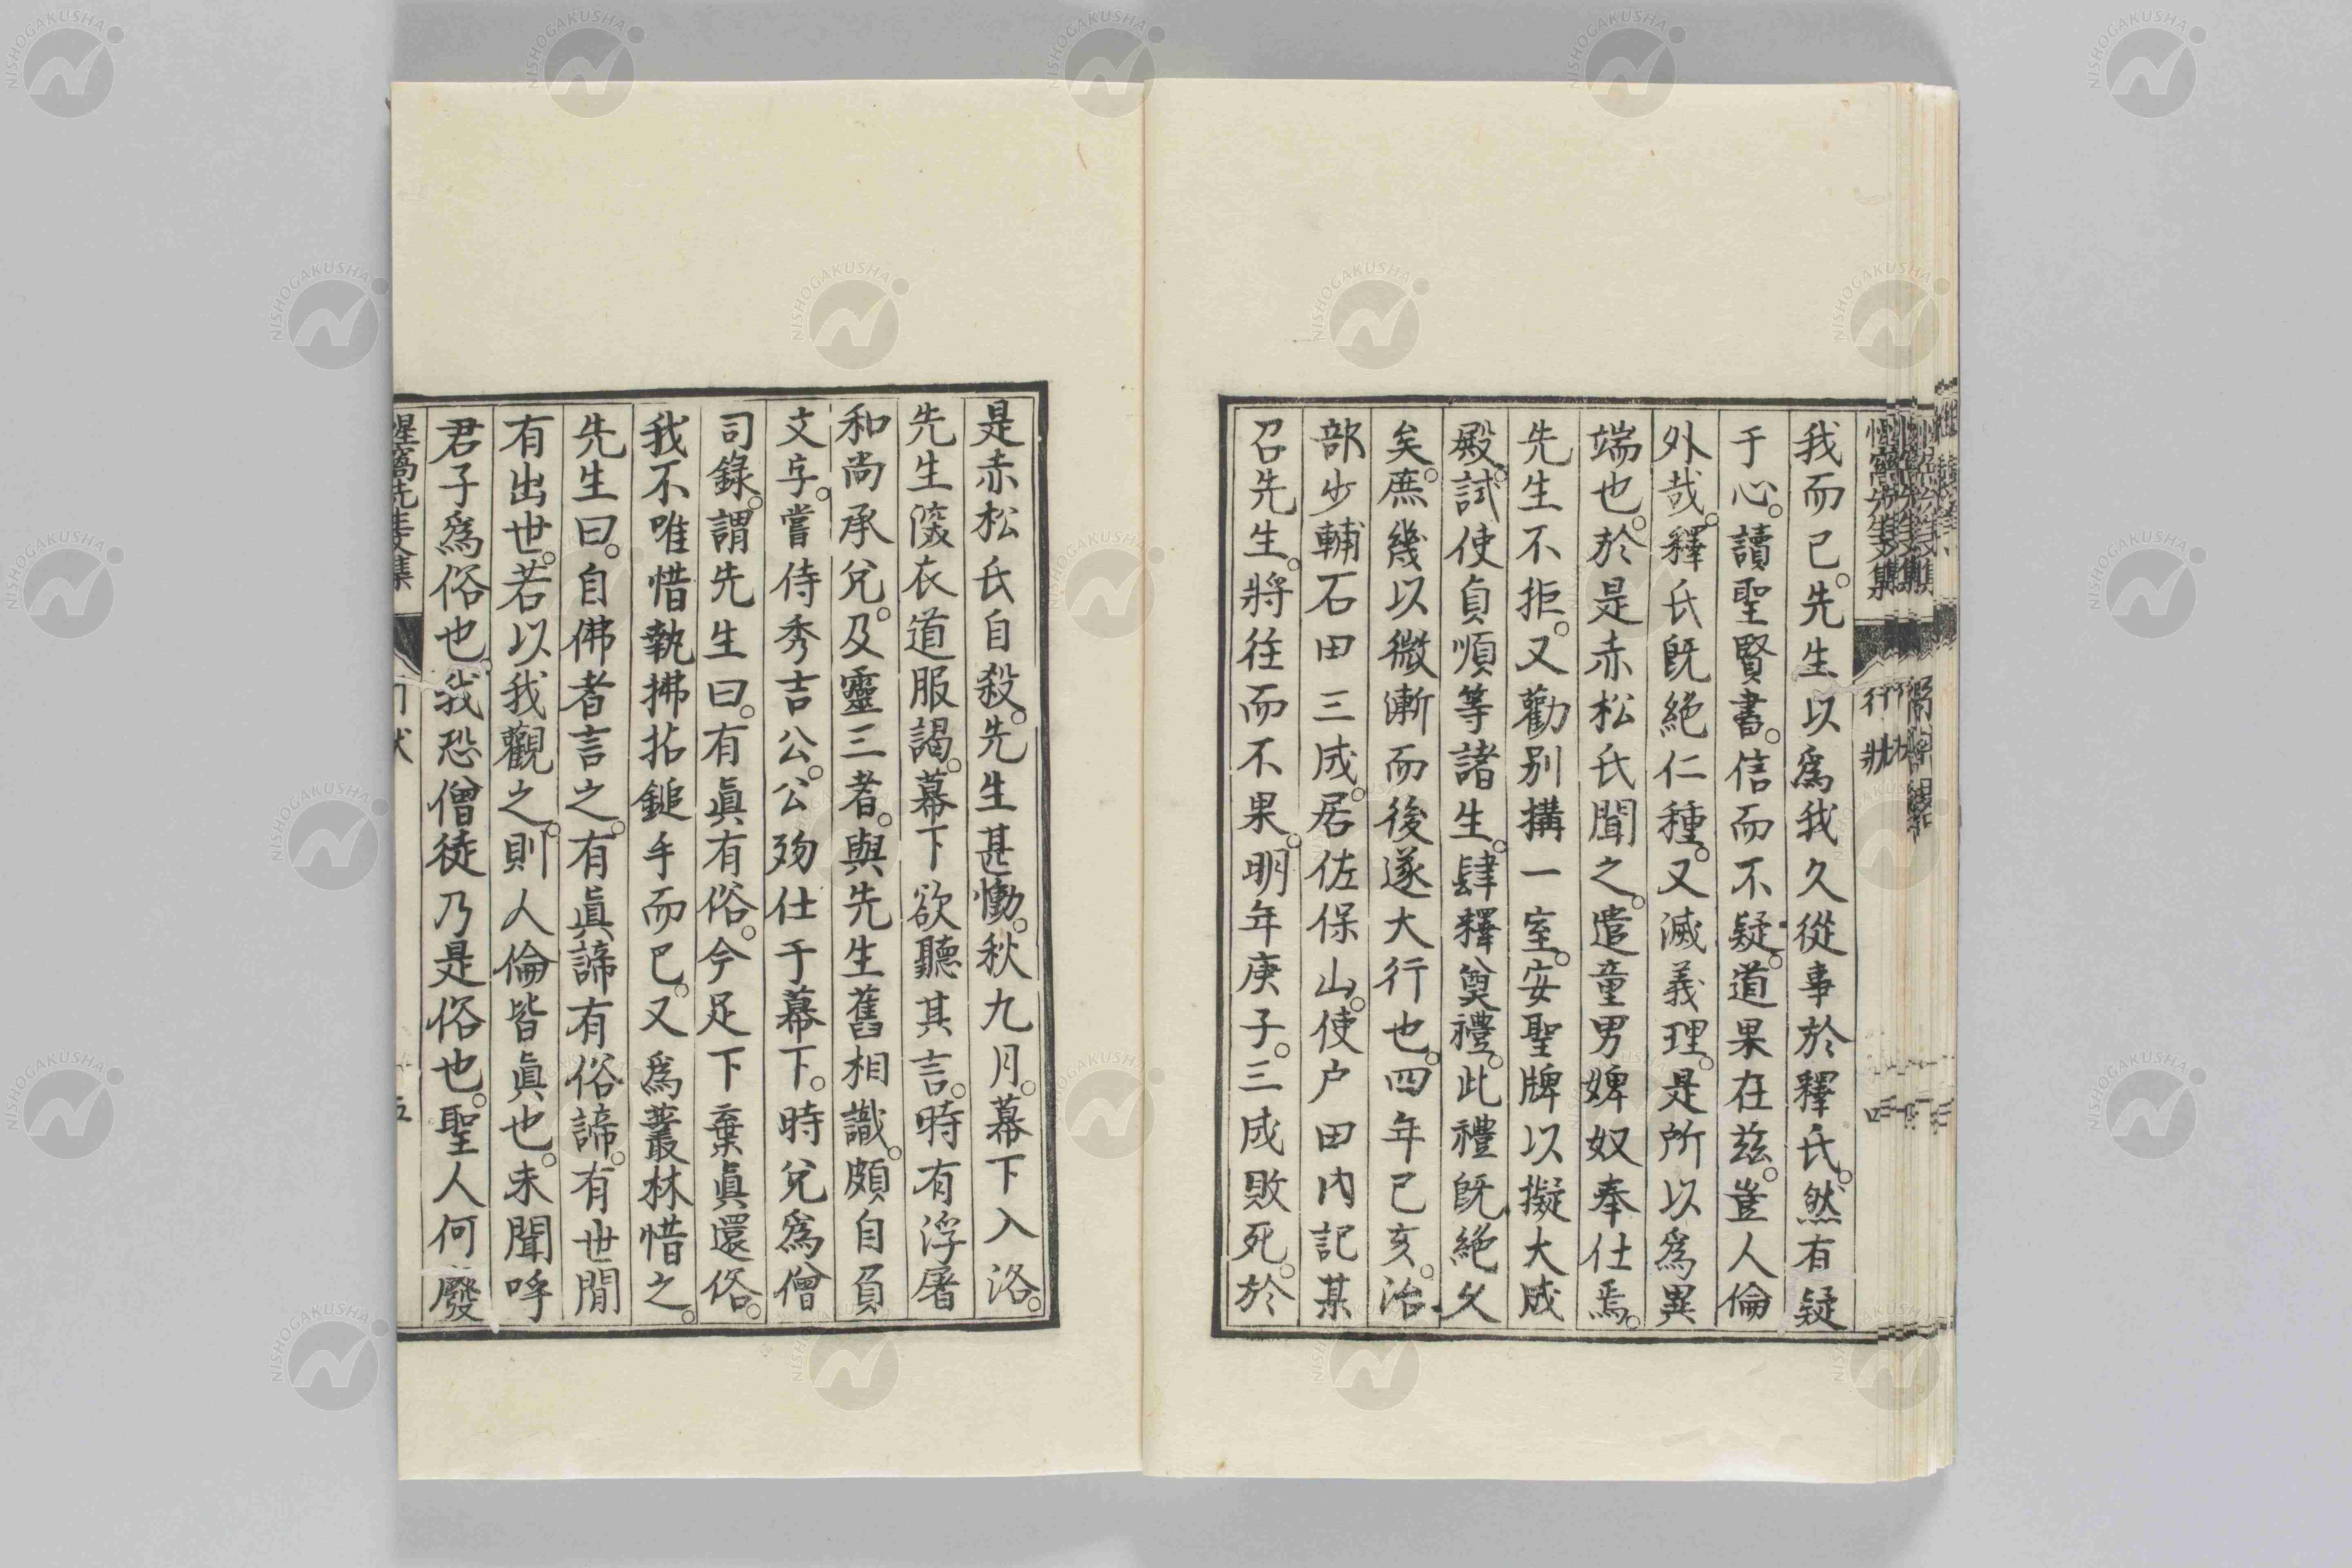 我而已。先生以爲我久從事於釋氏。然有疑
于心。讀聖賢書。信而不疑。道果在茲。豈人倫
外哉。釋氏既絶仁種。又滅義理。是所以爲異
端也。於是赤松氏聞之。遣童男婢奴奉仕焉。
先生不拒。又勸別搆一室。安聖牌以擬大成
殿。試使貞順等諸生。肆釋奠禮。此禮既絶久
矣。庶幾以微漸而後遂大行也。四年己亥。治
部少輔石田三成。居佐保山。使户田内記某
召先生。將往而不果。明年庚子。三成敗死。於
是赤松氏自殺。先生甚慟。秋九月。幕下入洛。
先生深衣道服謁。幕下欲聽其言。時有浮屠
和尚承兌。及靈三者。與先生舊相識。頗自負
文字。嘗侍秀吉公。公歿仕于幕下。時兌爲僧
司錄。謂先生曰。有眞有俗。今足下棄眞還俗。
我不唯惜執拂拈鎚手而已。又爲叢林惜之。
先生曰。自佛者言之。有眞諦有俗諦。有世間
有出世。若以我觀之。則人倫皆眞也。未聞呼
君子爲俗也。我恐僧徒乃是俗也。聖人何廢
惺窩先生文集
行狀
四
五
NISHOGAKUSHA